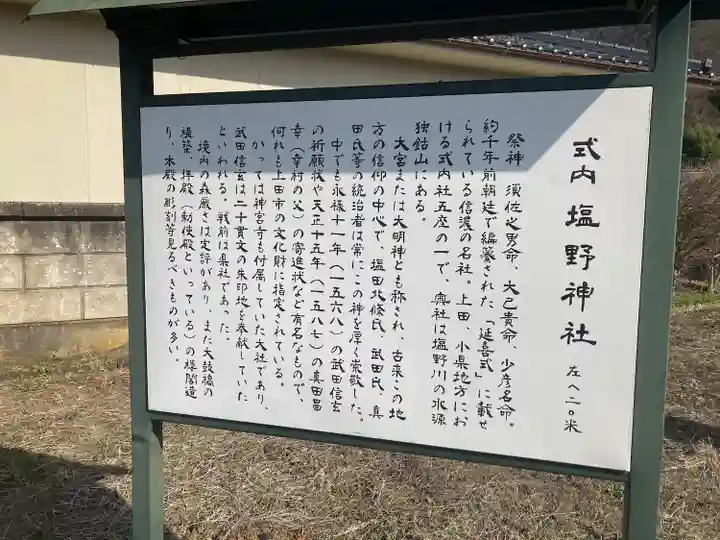 式内塩野神社 左へ二〇米
祭神 須佐之男命、大己貴命、少彦名命。
約千年前朝廷で編纂された「延喜式」に載せ
られている信濃の名社。上田、小県地方にお
ける式内社五座の一で、奥社は塩野川の水源
独鈷山にある。
大宮または大明神とも称され、古来この地
方の信仰の中心で、塩田北條氏、武田氏、真
田氏等の統治者は常にこの神を厚く崇敬した。
中でも永禄十一年(一五六八)の武田信玄
の祈願状や天正十五年(一五八七)の真田昌
幸(幸村の父)の寄進状など有名なもので、
何れも上田市の文化財に指定されている。
かつては神宮寺も付属していた大社であり、
武田信玄は二十貫文の朱印地を奉献していた
といわれる。戦前は県社であった。
境内の森厳さは定評があり、また太鼓橋の
構築、拝殿(勅使殿といっている)の楼閣造
り、本殿の彫刻等見るべきものが多い。